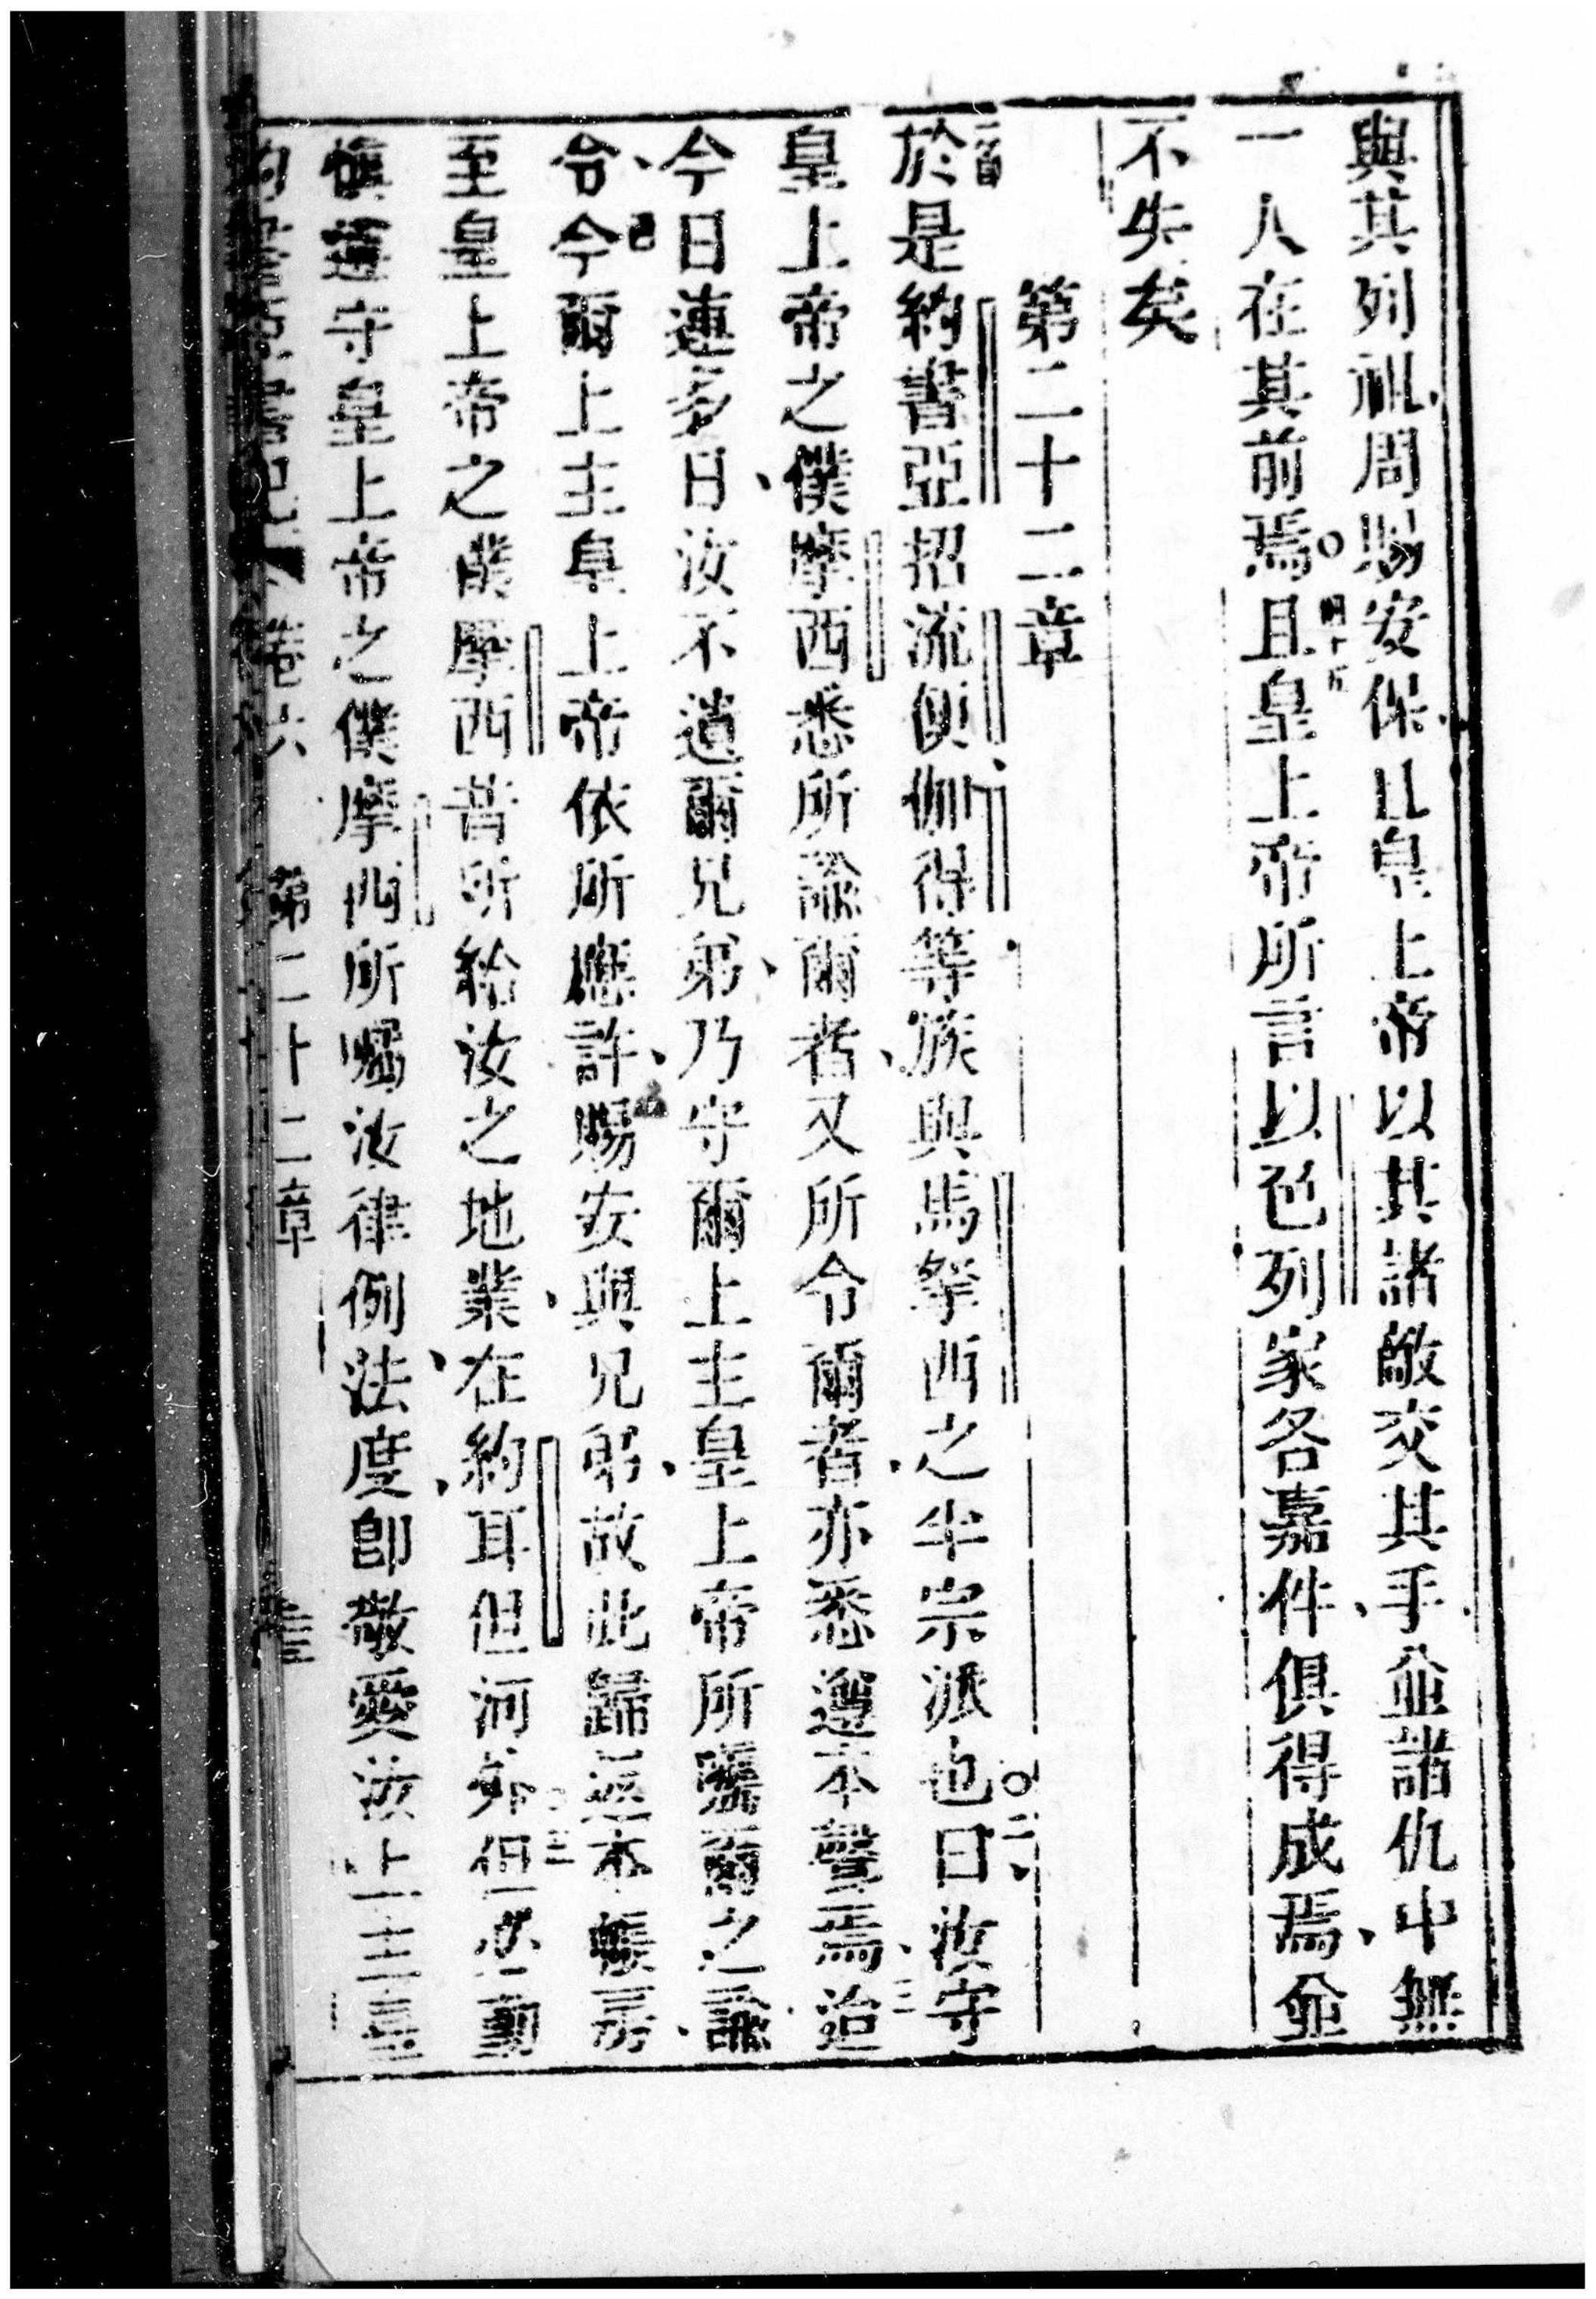 與其列祖周賜安保且皇上帝以其諸敵交其手並諸仇中無
一人在其前焉○且皇上帝所言以色列家各嘉件俱得成焉並
四十五
不失矣
第二十二章
於是約書亞招流便伽得等族與馬拏西之半宗派也○曰汝守
二
皇上帝之僕摩西悉所諭爾者又所令爾者亦悉遵本聲焉迨
三
今日連多日汝不遺爾兄弟乃守爾上主皇上帝所囑爾之諭
令今爾上主皇上帝依所應許賜安與兄弟故此歸返本帳房
至皇上帝之僕摩西昔所給汝之地業在約耳但河外但必勤
慎遵守皇上帝之僕摩西所囑汝律例法度即敬愛汝上主皇
卷六 第二十二章